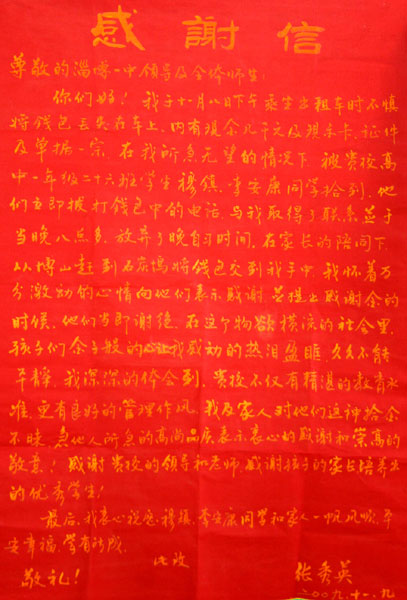 感謝信
尊敬的淄博一中领导及全体师生:
你们好！我于十一月八日下午乘坐出租车时不慎
将钱包丢失在车上,内有现金几千元及现金卡、证件
及单据一宗。在我所急无望的情况下,被贵校高
中一年级二十六班学生穆镇、李安康同学拾到,他
们立即拨打钱包中的电话与我取得了联系并于
当晚八点多,放弃了晚自习时间,在家长的陪同下,
从博山赶到石府将钱包交到我手中,我怀着万
分激动的心情向他们表示感谢,并提出感谢金的
时候,他们当即谢绝,在这个物欲横流的社会里,
孩子们金子般的心让我感动的热泪盈眶,久久不能
平静,我深深的体会到,贵校不仅有精湛的教育水
准,更有良好的管理作风,我及家人对他们这种拾金
不昧,急他人所急的高尚品质表示衷心的感谢和崇高的
敬意！感谢贵校的领导和老师,感谢孩子的家长培养出
的优秀学生！
最后,我衷心祝愿穆镇、李安康同学和家人一帆风顺,平
安幸福,学有所成。
此致
敬礼！
张秀英
二00九.十一.九